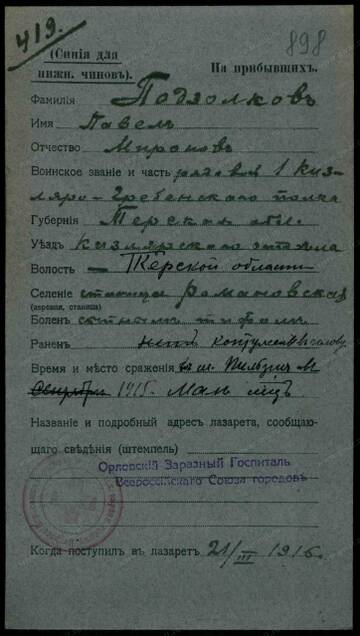 419.
898
(Синія для
нижн. чиновъ).
На прибывшихъ.
Фамилія Подзолковъ
Имя Павелъ
Отчество Мироновъ
Воинское званіе и часть рядовой 1 Киз-
ляро-Гребенского полка
Губернія Терская обл.
Уѣздъ Кизлярского отдѣла
Волость — Терской области
Селеніе станица Романовская
(деревня, станица)
Боленъ сыпнымъ тифомъ
Раненъ
Время и мѣсто сраженія
1915. Май мцъ
Названіе и подробный адресъ лазарета, сообщаю-
щаго свѣдѣнія (штемпель)
Орловскій Заразный Госпиталь
Всероссійскаго Союза городовъ
Когда поступилъ въ лазаретъ 21/III 1916.